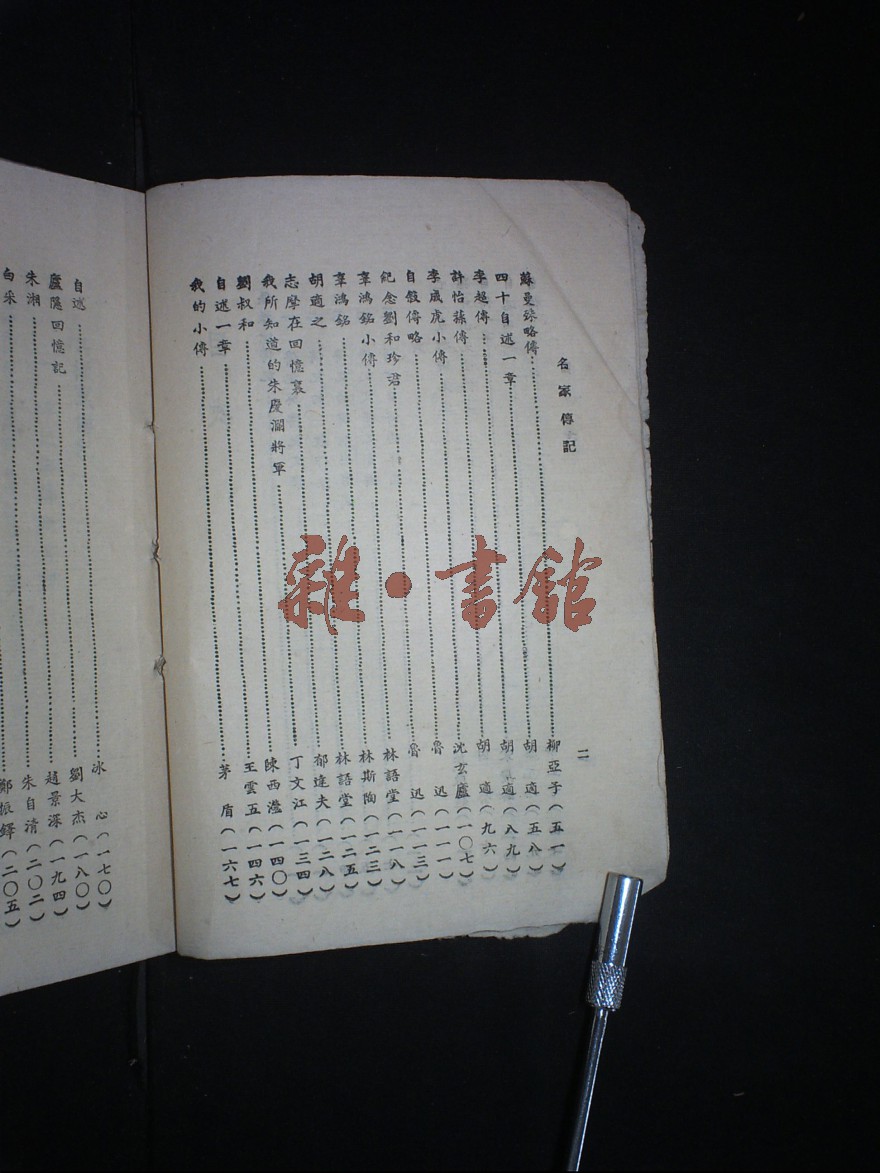 名家傳記
二
蘇曼殊略傳……柳亞子(五一)
四十自述一章……胡適(五八)
李超傳……胡適(八九)
許怡蓀傳……胡適(九六)
李成虎小傳……沈玄廬(一〇七)
自敍傳略……魯迅(一一一)
紀念劉和珍君……魯迅(一一三)
辜鴻銘小傳……林語堂(一一八)
辜鴻銘……林斯陶(一二三)
胡適之……林語堂(一二五)
志摩在回憶裏……郁達夫(一二八)
我所知道的朱慶瀾將軍……丁文江(一三四)
劉叔和……陳西瀅(一四〇)
自述一章……王雲五(一四六)
我的小傳……茅盾(一六七)
自述……冰心(一七〇)
廬隱回憶記……劉大杰(一八〇)
朱湘……趙景深(一九四)
白采……朱自清(二〇二)
鄭振鐸(二〇五)
雜·書館